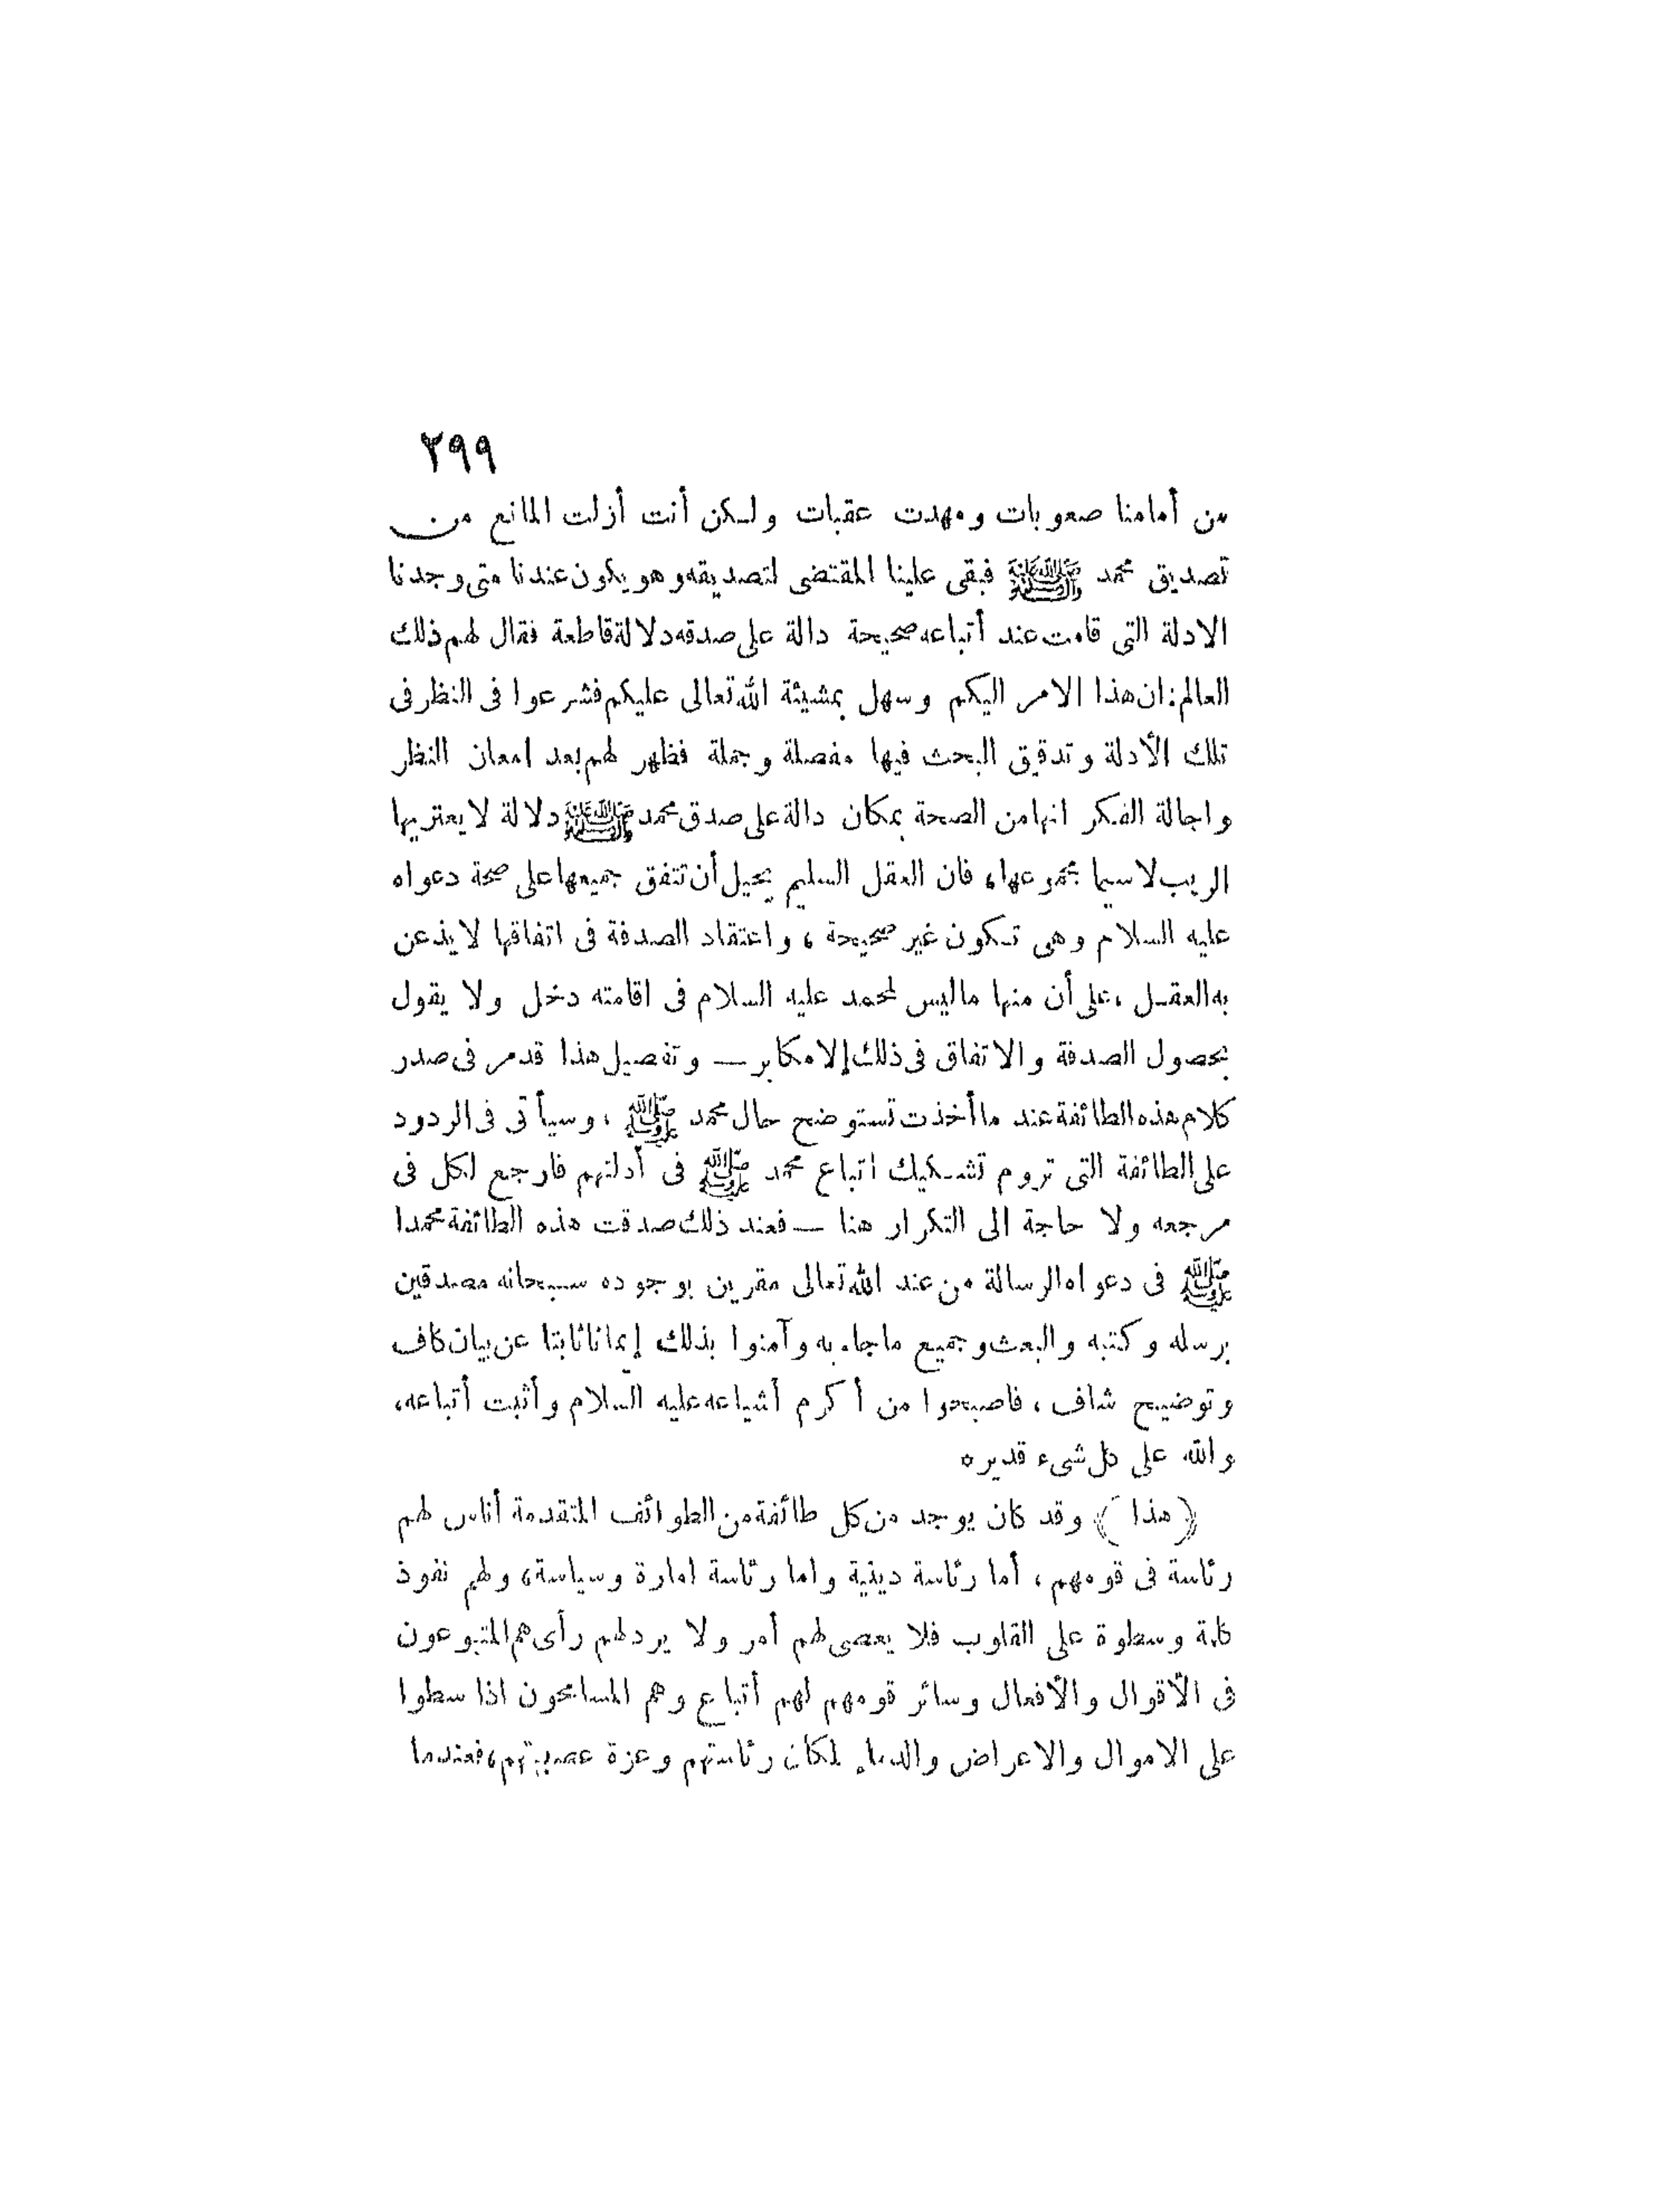 ٢٩٩
من أمامنا صعوبات ومهدت عقبات ولكن أنت أزلت المانع من
تصديق محمد ﷺ فبقى علينا المقتضى لتصديقه وهو يكون عندنا متى وجدنا
الادلة التى قامت عند أتباعه صحيحة دالة على صدقه دلالة قاطعة فقال لهم ذلك
العالم: ان هذا الامر اليكم وسهل بمشيئة الله تعالى عليكم فشرعوا فى النظر فى
تلك الأدلة وتدقيق البحث فيها مفصلة وجملة فظهر لهم بعد امعان النظر
واجالة الفكر انها من الصحة بمكان دالة على صدق محمد ﷺ دلالة لا يعتريها
الريب لاسيما مجموعها، فان العقل السليم يحيل أن تتفق جميعها على صحة دعواه
عليه السلام وهى تكون غير صحيحة ، واعتقاد الصدفة فى اتفاقها لا يذعن
به العقل ، على أن منها ما ليس لمحمد عليه السلام فى اقامته دخل ولا يقول
بحصول الصدفة والاتفاق فى ذلك إلا مكابر — وتفصيل هذا قد مر فى صدر
كلام هذه الطائفة عند ما أخذت تستوضح حال محمد ﷺ ، وسيأتى فى الردود
على الطائفة التى تروم تشكيك اتباع محمد ﷺ فى أدلتهم فارجع لكل فى
مرجعه ولا حاجة الى التكرار هنا — فعند ذلك صدقت هذه الطائفة محمدا
ﷺ فى دعواه الرسالة من عند الله تعالى مقرين بوجوده سبحانه مصدقين
برسله وكتبه والبعث وجميع ماجاء به وآمنوا بذلك إيمانا ثابتا عن بيان كاف
وتوضيح شاف ، فاصبحوا من أكرم أشياعه عليه السلام وأثبت أتباعه،
والله على كل شىء قدير ه
﴿ هذا ﴾ وقد كان يوجد من كل طائفة من الطوائف المتقدمة أناس لهم
رئاسة فى قومهم ، أما رئاسة دينية واما رئاسة امارة وسياسة، ولهم نفوذ
كلمة وسطوة على القلوب فلا يعصى لهم أمر ولا يرد لهم رأى هم المتبوعون
فى الأقوال والأفعال وسائر قومهم لهم أتباع وهم المسامحون اذا سطوا
على الاموال والاعراض والدماء لمكان رئاستهم وعزة عصبيتهم، فعندما